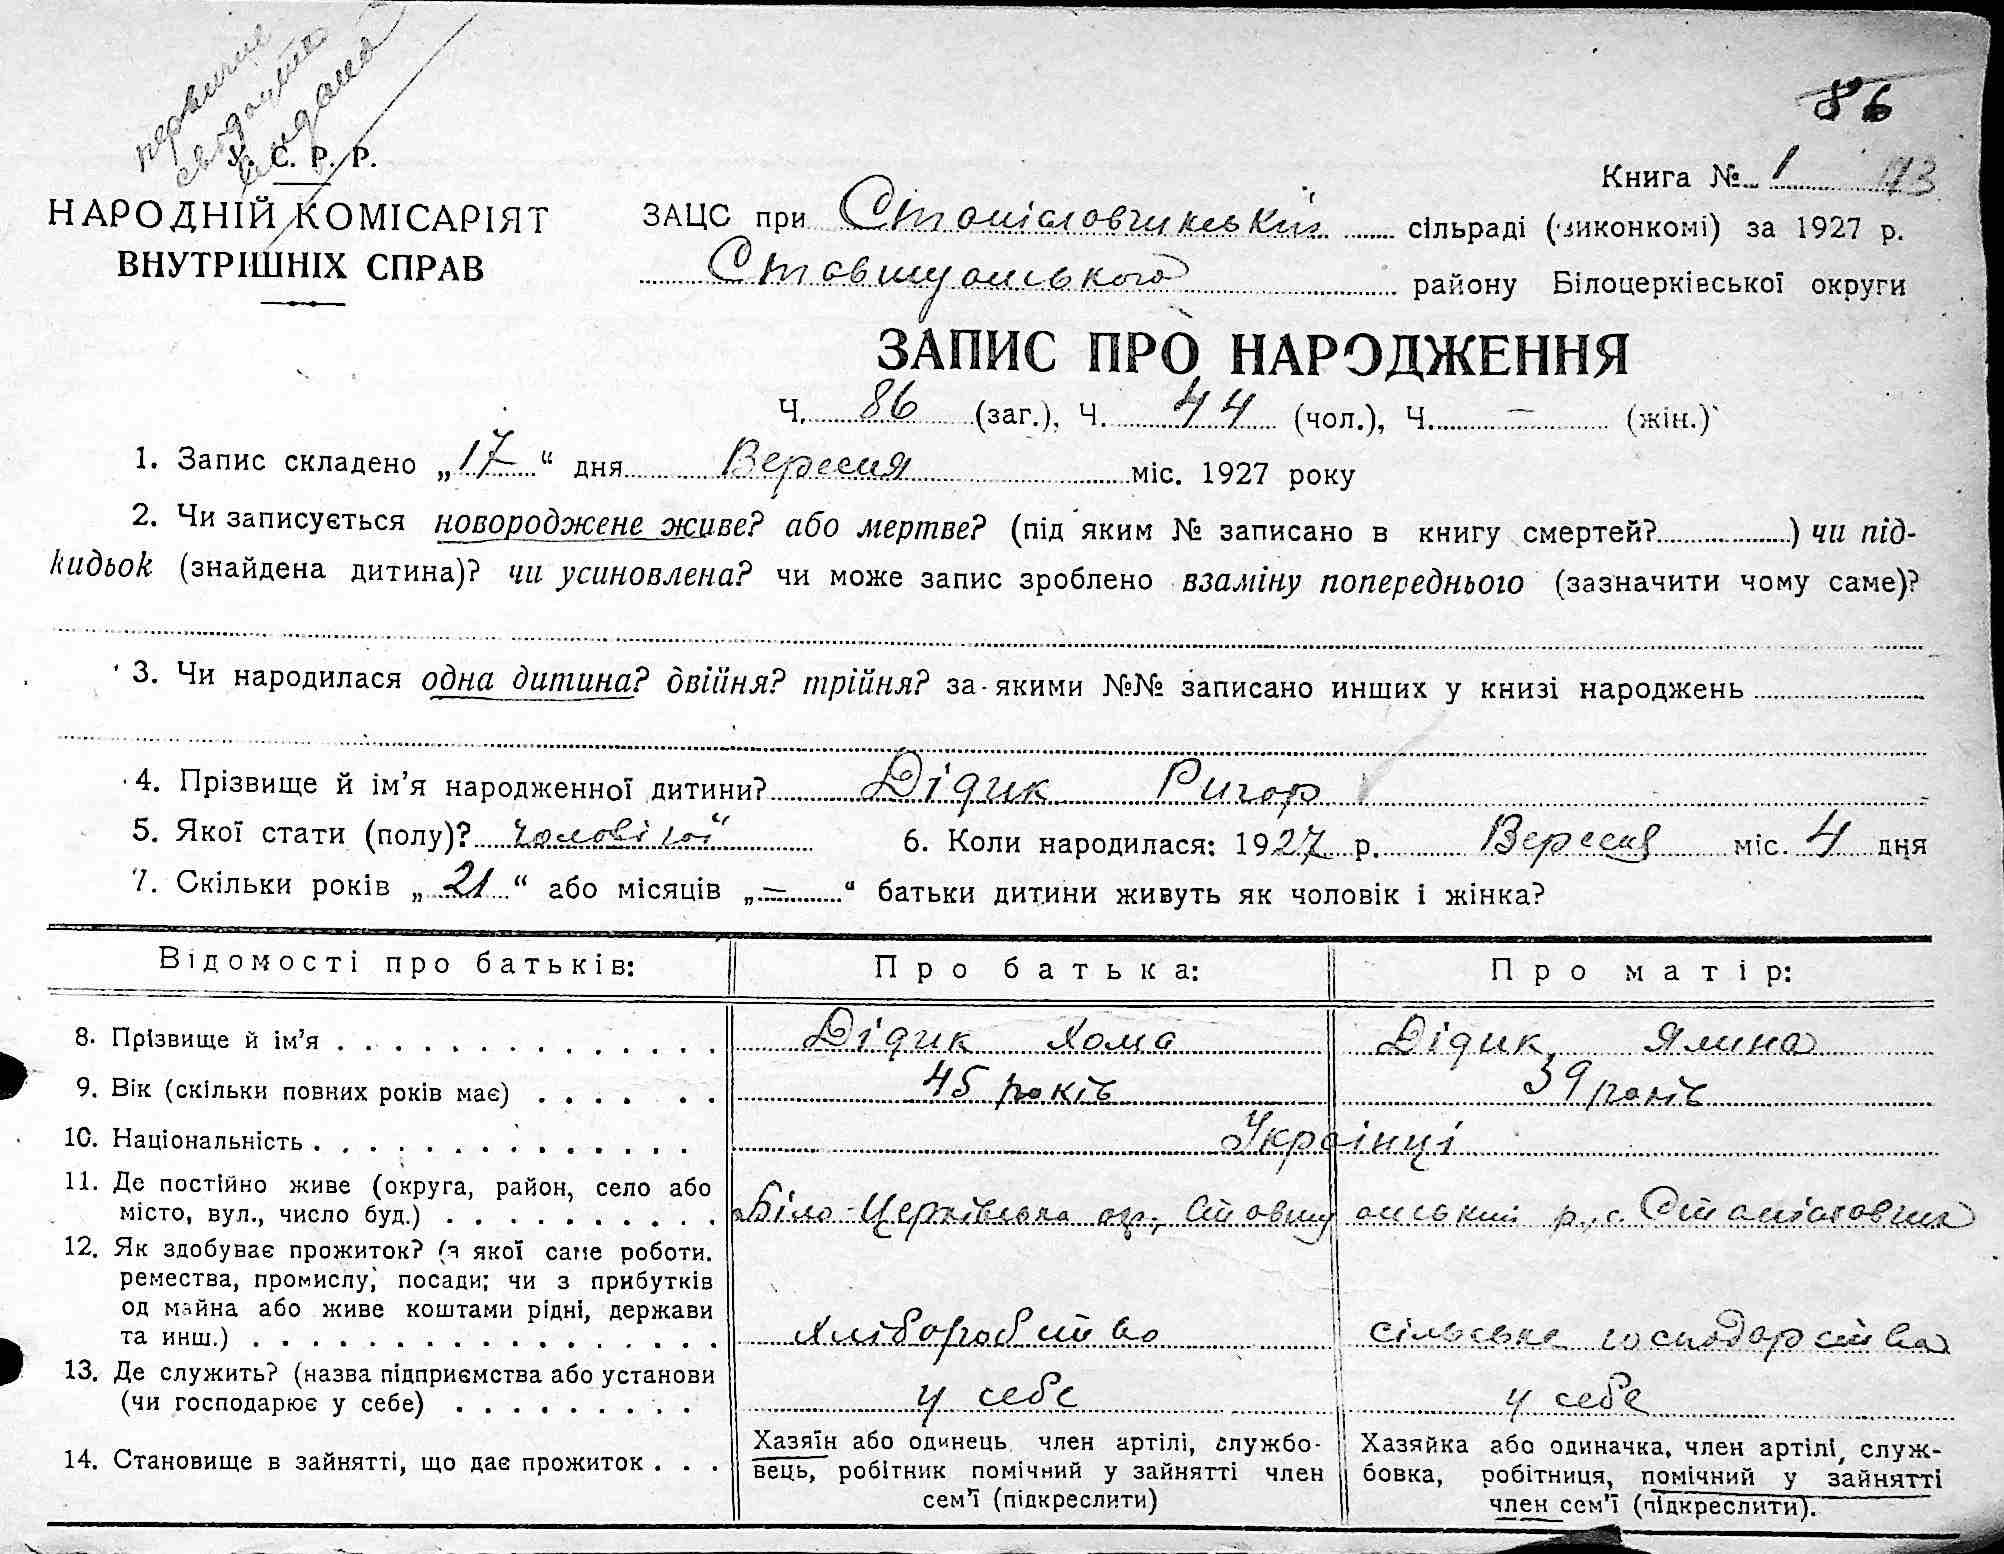 первичне
свідоцтво
видано
У. С. Р. Р.
НАРОДНІЙ КОМІСАРІЯТ
ВНУТРІШНІХ СПРАВ
86
Книга №. 1 173
ЗАЦС при Станіславчикській сільраді (виконкомі) за 1927 р.
Ставищанського району Білоцерківської округи
ЗАПИС ПРО НАРОДЖЕННЯ
Ч. 86 (заг.), Ч. 44 (чол.), Ч. — (жін.)
1. Запис складено „17“ дня Вересня міс. 1927 року
2. Чи записується новороджене живе? або мертве? (під яким № записано в книгу смертей?..........) чи під-
кидьок (знайдена дитина)? чи усиновлена? чи може запис зроблено взаміну попереднього (зазначити чому саме)?
3. Чи народилася одна дитина? двійня? трійня? за якими №№ записано инших у книзі народжень
4. Прізвище й ім’я народженної дитини? Дідик Ригор
5. Якої стати (полу)? чоловічої 6. Коли народилася: 1927 р. Вересня міс. 4 дня
7. Скільки років „21“ або місяців „=“ батьки дитини живуть як чоловік і жінка?
Відомості про батьків: Про батька: Про матір:
8. Прізвище й ім’я . . . Дідик Хома Дідик Ялина
9. Вік (скільки повних років має) . . . . 45 років 39 років
10. Національність . . . Українці
11. Де постійно живе (округа, район, село або
місто, вул., число буд.) . . . Біло-Церківська окр., Ставищанський р., с. Станіславчик
12. Як здобуває прожиток? (з якої саме роботи.
ремества, промислу, посади; чи з прибутків
од майна або живе коштами рідні, держави
та инш.) . . . Хліборобство сільське господарства
13. Де служить? (назва підприємства або установи
(чи господарює у себе) . . . у себе у себе
14. Становище в зайнятті, що дає прожиток . . .
Хазяїн або одинець, член артілі, службо-
вець, робітник помічний у зайнятті член
сем’ї (підкреслити)
Хазяйка або одиначка, член артілі, служ-
бовка, робітниця, помічний у зайнятті
член сем’ї (підкреслити).